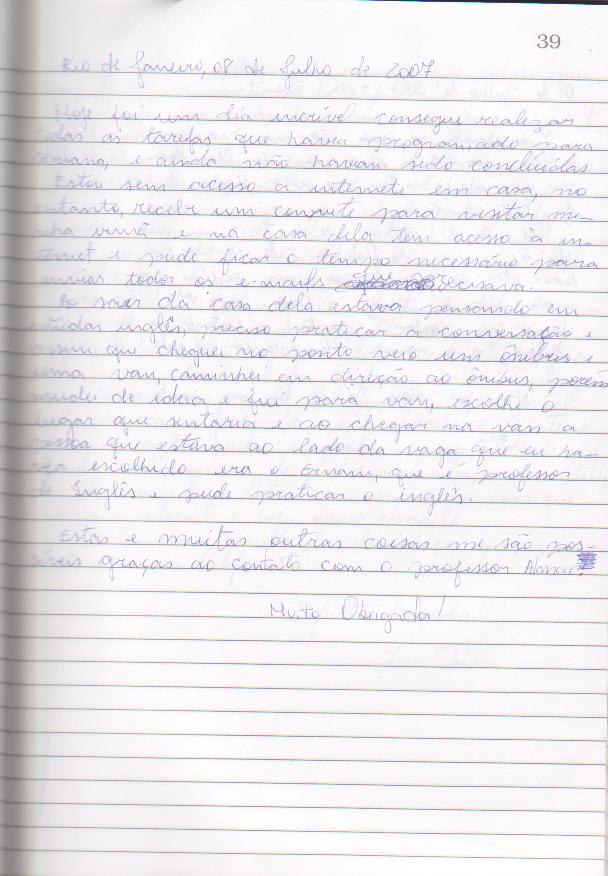 39
Rio de Janeiro, 08 de Julho de 2007
Hoje foi um dia incrível consegui realizar
todas as tarefas que havia programado para
semana, e ainda não haviam sido concluídas
Estou sem acesso a internete em casa, no
entanto, recebi um convite para visitar mi-
nha irmã e na casa dela tem acesso à in-
ternet e pude ficar o tempo necessário para
enviar todos os e-mails que precisava.
Ao sair da casa dela estava pensando em
estudar inglês, preciso praticar a conversação e
assim que cheguei no ponto veio um ônibus e
uma van, caminhei em direção ao ônibus, porém
mudei de ideia e fui para van, escolhi o
lugar que sentaria e ao chegar na van a
pessoa que estava ao lado da vaga que eu ha-
via escolhido era o Ernani, que é professor
de Inglês e pude praticar o inglês.
Estas e muitas outras coisas me são pos-
síveis graças ao contato com o professor
Muito Obrigada!